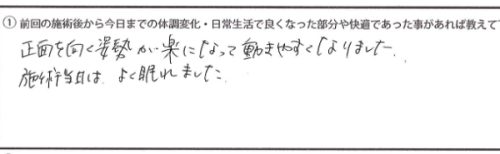 ① 前回の施術後から今日までの体調変化・日常生活で良くなった部分や快適であった事があれば教えて
正面を向く姿勢が楽になって動きやすくなりました.
施術当日は よく眠れました.